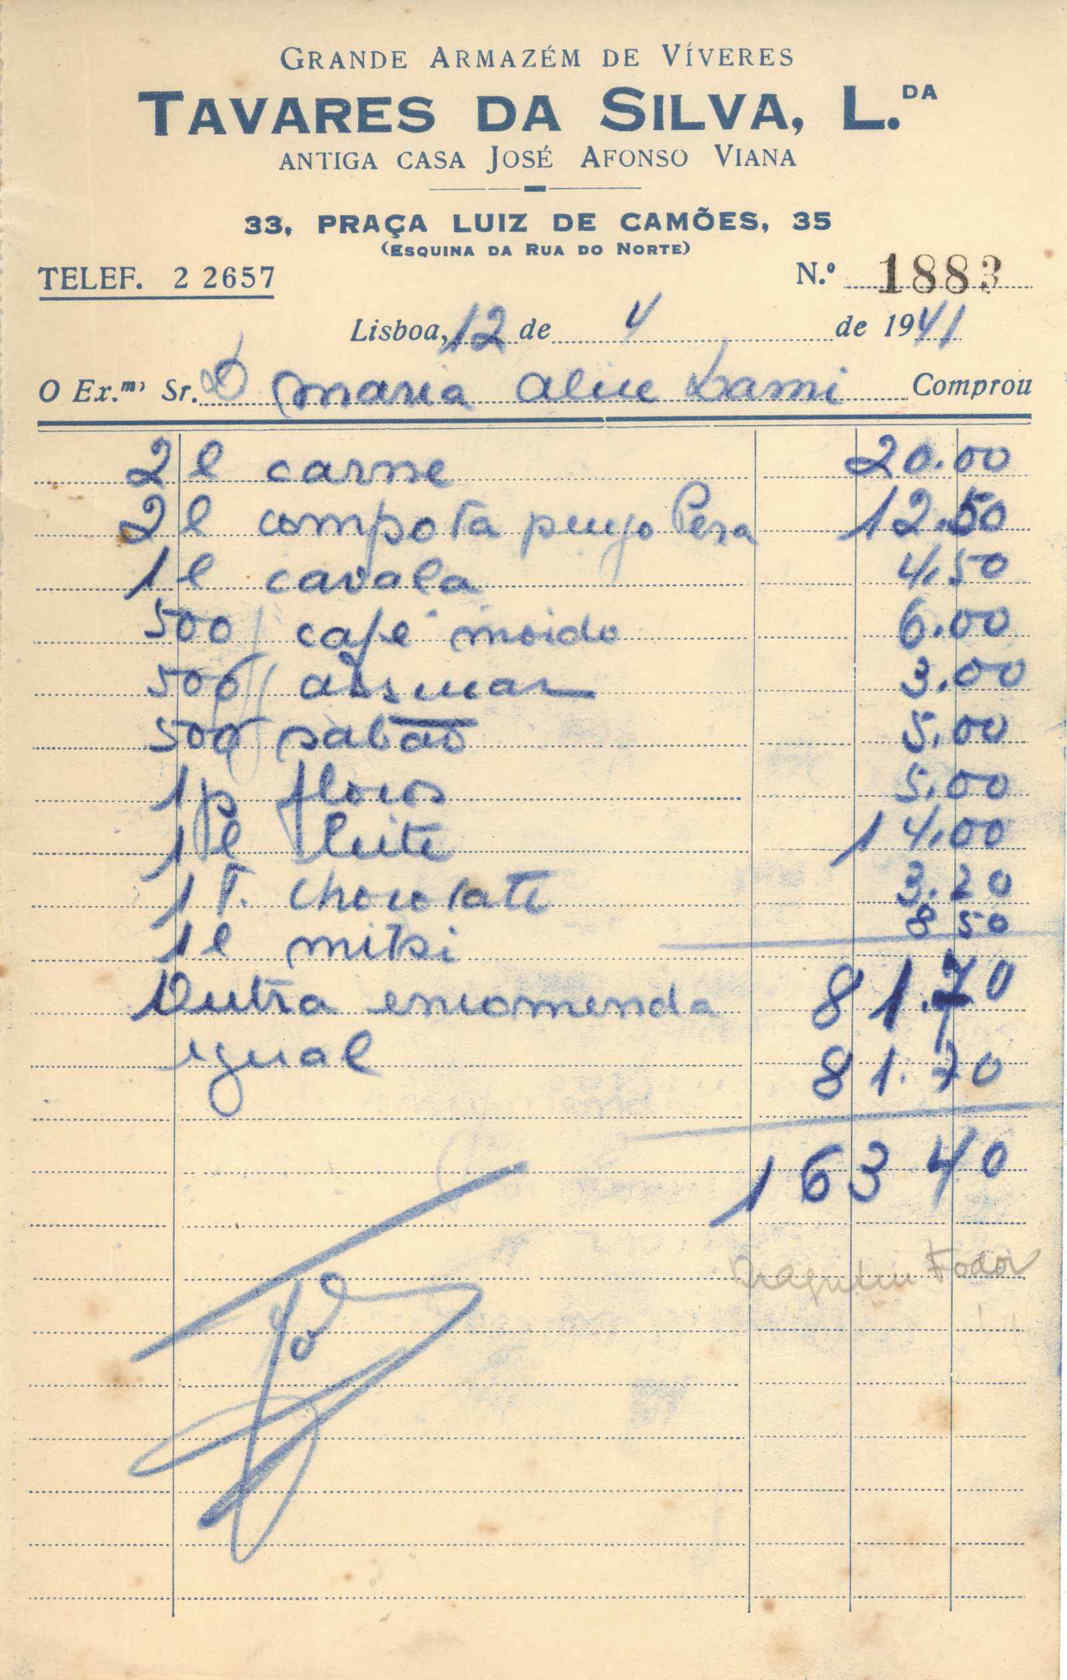 GRANDE ARMAZÉM DE VÍVERES
TAVARES DA SILVA, L.DA
ANTIGA CASA JOSÉ AFONSO VIANA
33, PRAÇA LUIZ DE CAMÕES, 35
(ESQUINA DA RUA DO NORTE)
TELEF. 2 2657 N.º 1883
Lisboa, 12 de 4 de 1941
O Ex.mo Sr. D Maria Alice Lami Comprou
2 l carne 20.00
2 l compota Pera 12.50
1 l cavala 4.50
500 / café moido 6.00
500 / 3.00
500 sabão 5.00
1 p flocos 5.00
1 l leite 14.00
1 T. chocolate 3.20
1 l 8 50
Outra encomenda 81.70
igual 81.70
163 40
Fodor